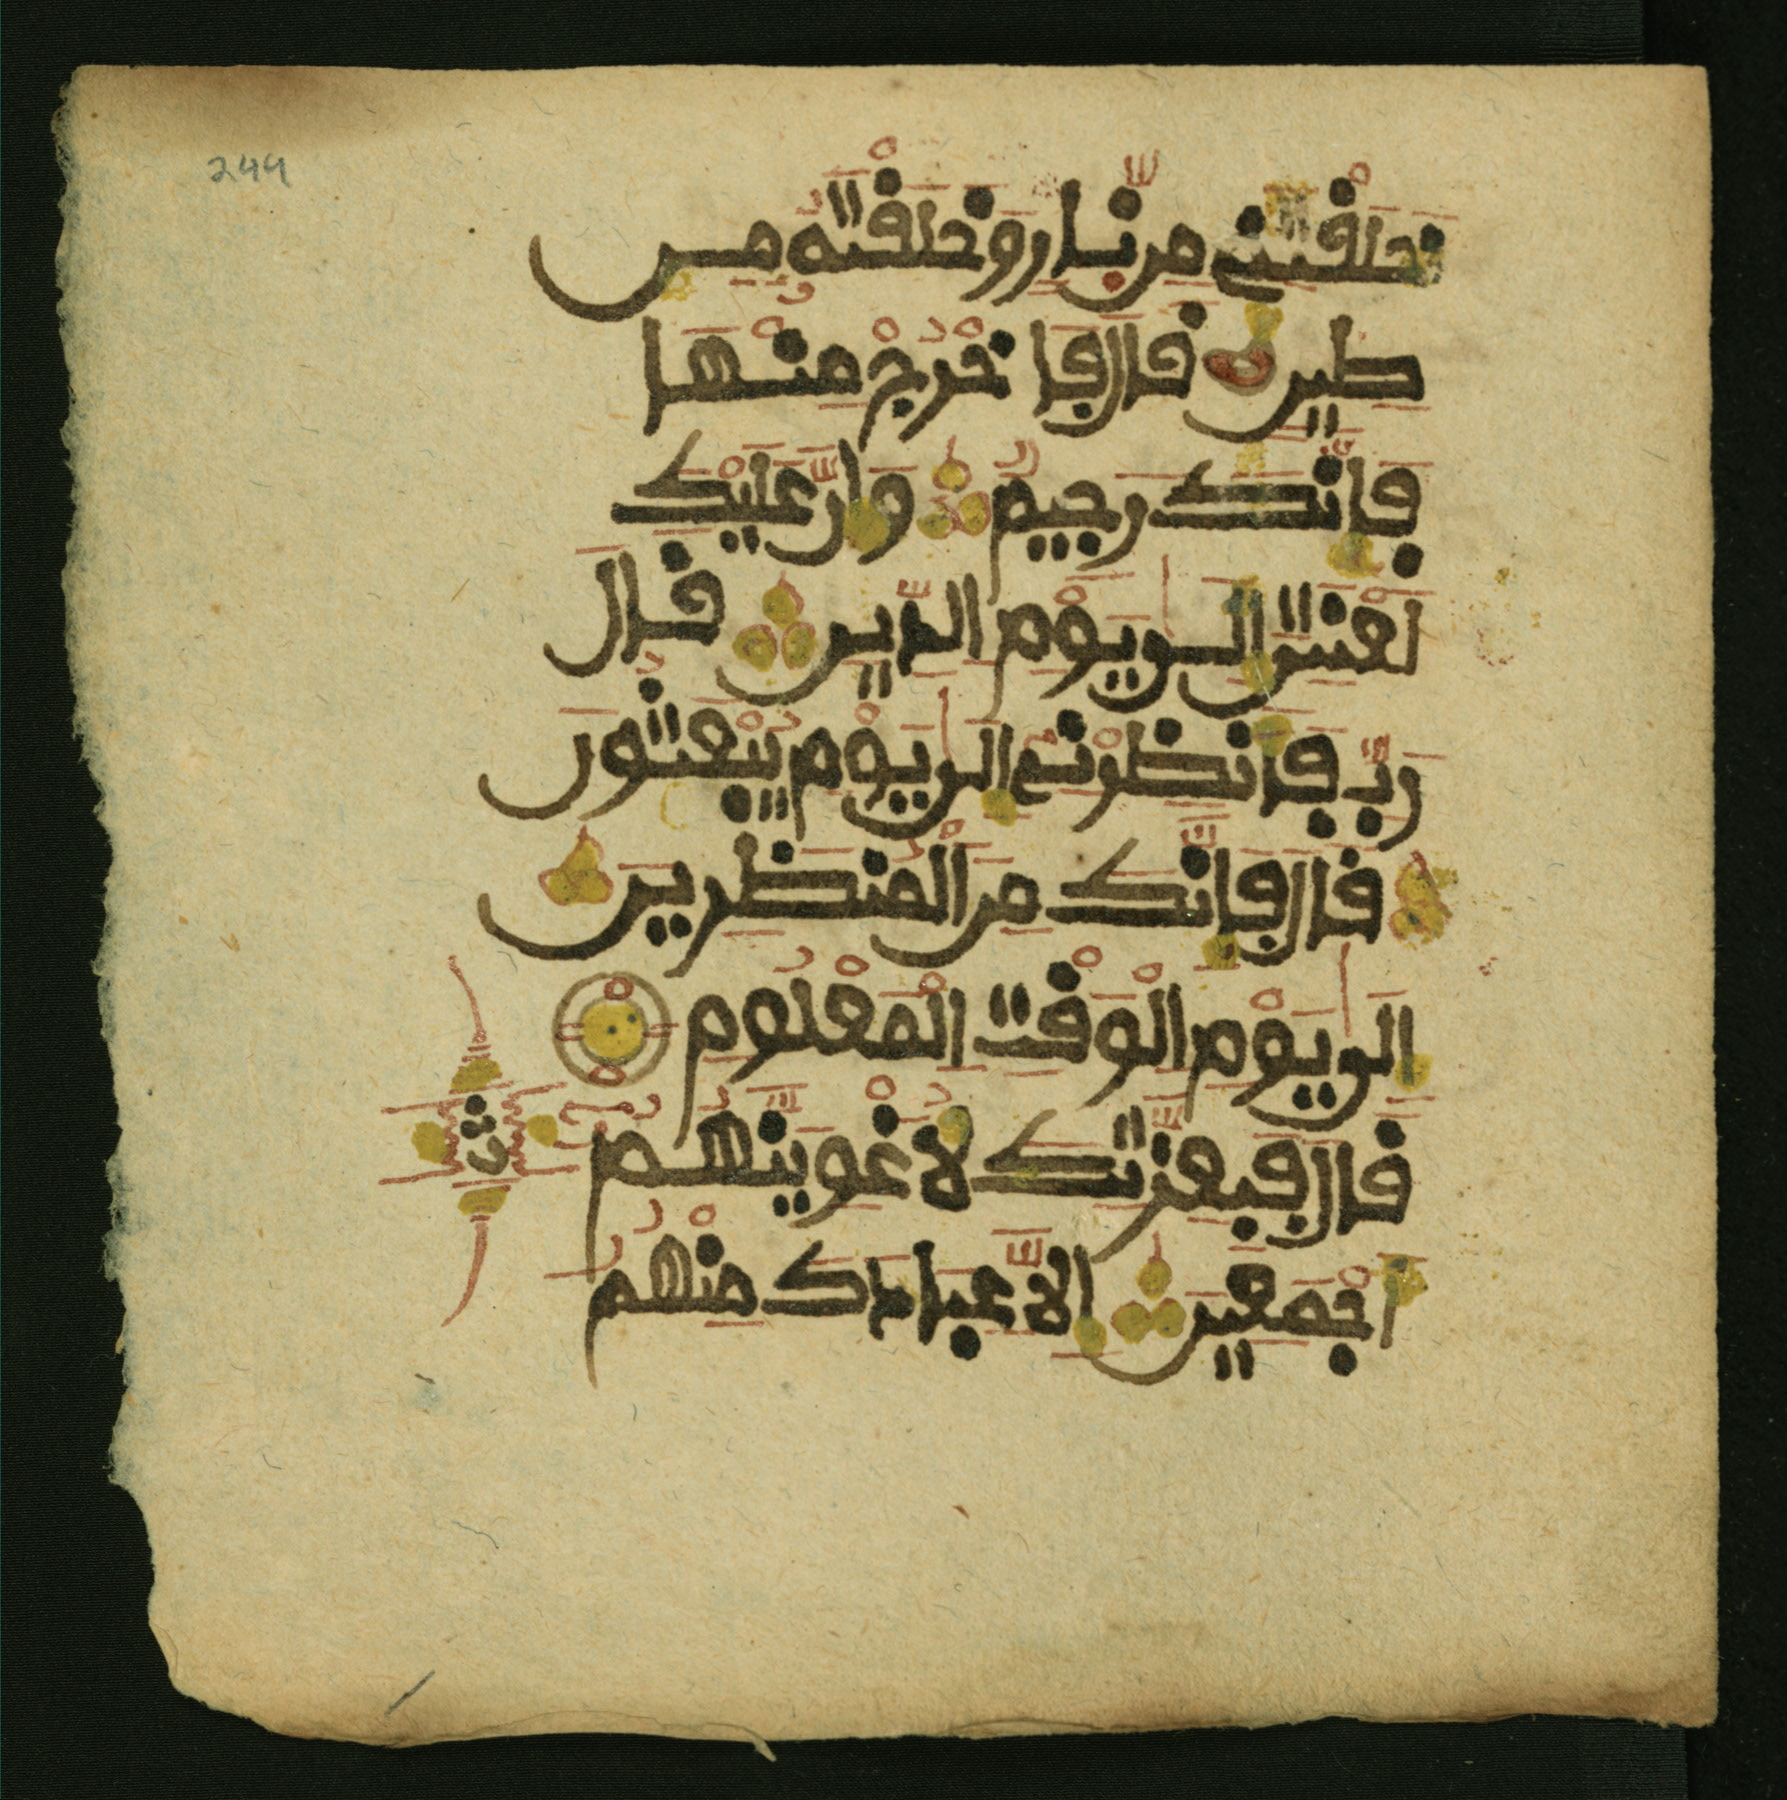 244
خَلَقْتَنِے مِن نّ۪ارٖ وَخَلَقْتَهُۥ مِن
طِينٖ قَالَ فَاخْرُجْ مِنْهَا
فَإِنَّكَ رَجِيمٞ وَإِنَّ عَلَيْكَ
لَعْنَتِيَ إِلَىٰ يَوْمِ اِ۬لدِّينِ قَالَ
رَبِّ فَأَنظِرْنِےٓ إِلَىٰ يَوْمِ يُبْعَثُونَ
قَالَ فَإِنَّكَ مِنَ اَ۬لْمُنظَرِينَ
إِلَىٰ يَوْمِ اِ۬لْوَقْتِ اِ۬لْمَعْلُومِ
قَالَ فَبِعِزَّتِكَ لَأُغْوِيَنَّهُمُۥٓ
أَجْمَعِينَ إِلَّا عِبَادَكَ مِنْهُمُ
ث